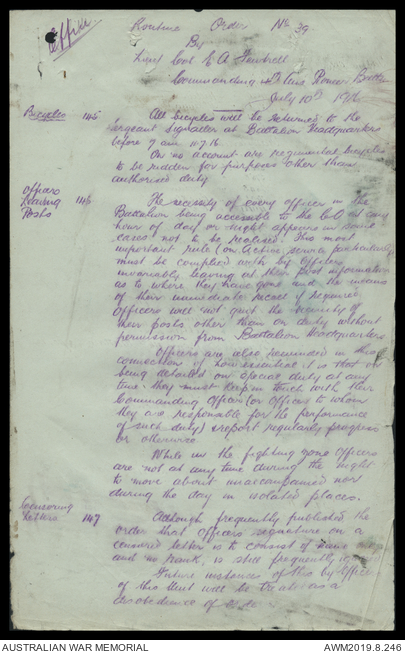 Office
Routine Order No 39
By
Lieut Col E A
Commanding 4th Aus Pioneer Battn
July 10th 1916
Bicycles 145 All bicycles will be returned to the
Sergeant Signaller at Battalion Headquarters
before 9 am 10.7.16
On no account are regimental bicycles
to be ridden for purposes other than
authorised duty
Officers Leaving Posts 146 The necessity of every officer in the
Battalion being accessible to the C.O at any
hour of day or night appears in some
cases not to be realised. This most
important rule (on Active Service particularly)
must be complied with by Officers
invariably leaving at their post information
as to where they have gone and the means
of their immediate recall if required
Officers will not quit the vicinity of
their posts other than on duty without
permission from Battalion Headquarters
Officers are also reminded in this
connection of how essential it is that on
being detailed on special duty at any
time they must keep in touch with their
Commanding Officer (or Officer to whom
they are responsible for the performance
of such duty) & report regularly progress
or otherwise
While in the fighting zone Officers
are not at any time during the night
to move about unaccompanied nor
during the day in isolated places.
Censoring Letters 147 Although frequently published the
order that Officers signature on a
censored letter is to consist of name only
and no rank, is still frequently
Future instances of this by Officers
of this Unit will be treated as a
disobedience of
AUSTRALIAN WAR MEMORIAL
AWM2019.8.246